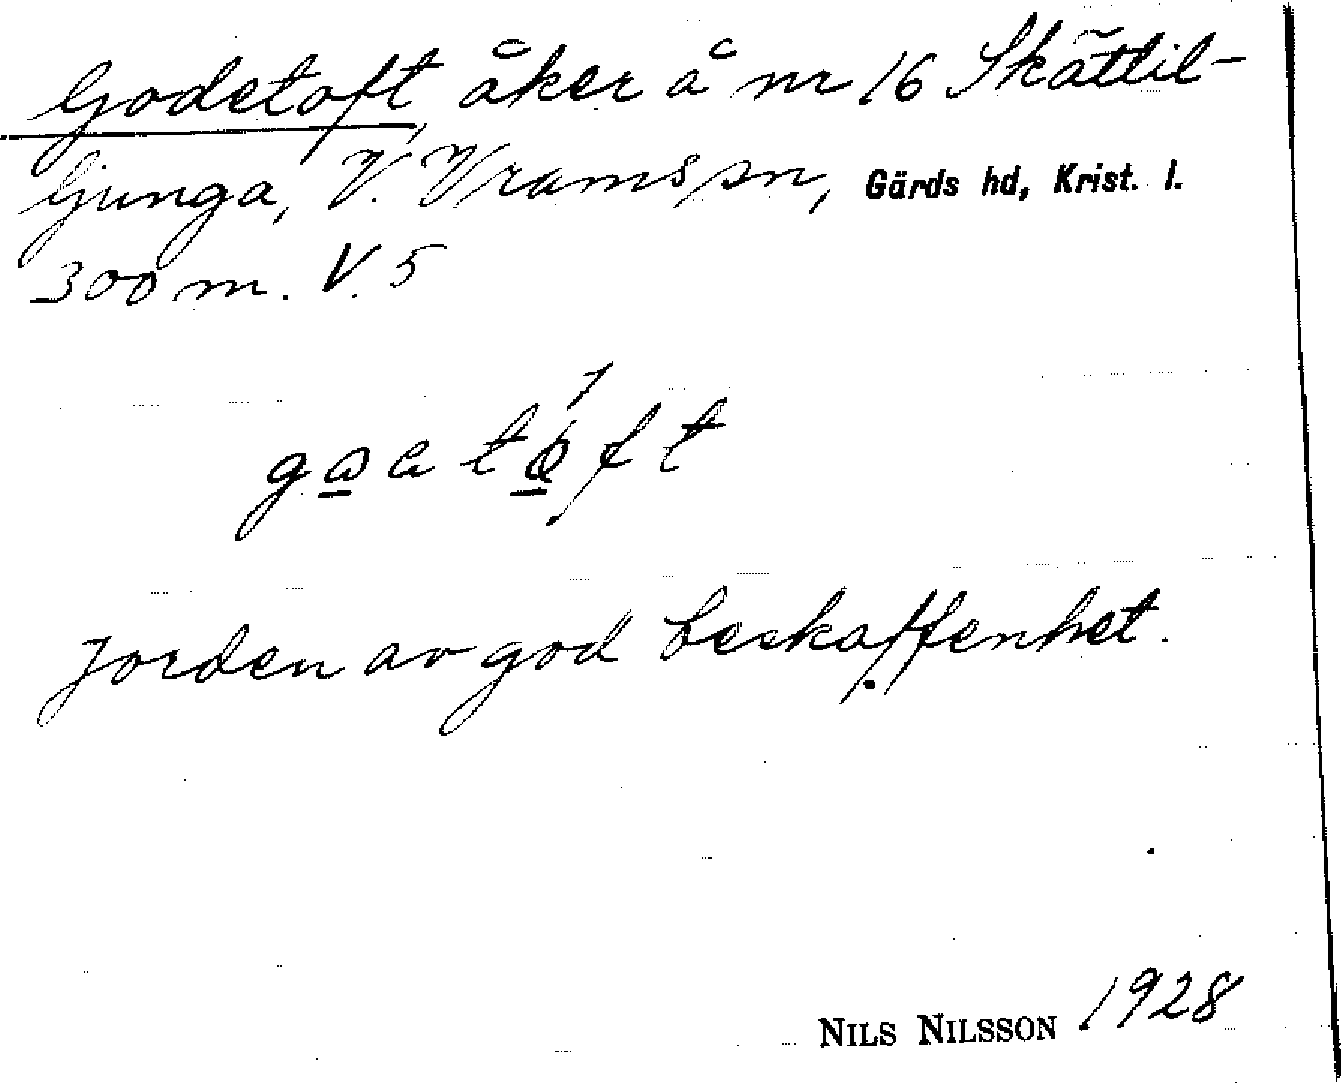 Godetoft, åker å nr 16 Skättil-
ljunga, V. Vrams sn, Gärds hd, Krist. l.
300 m. V. 5
Jorden av god beskaffenhet.
NILS NILSSON 1928